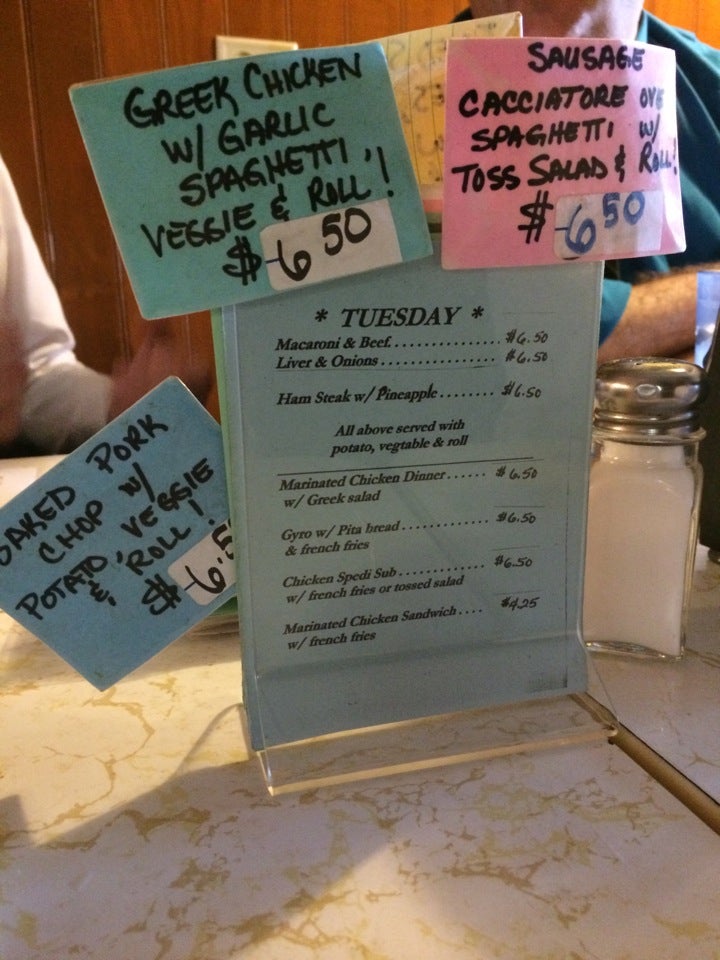 GREEK CHICKEN
W/ GARLIC
SPAGHETTI,
VEGGIE & ROLL!
$6.50
SAUSAGE
CACCIATORE OVE
SPAGHETTI W/
TOSS SALAD & ROLL!
$6.50
* TUESDAY *
Macaroni & Beef.............. $6.50
Liver & Onions................ $6.50
Ham Steak w/ Pineapple........ $6.50
All above served with
potato, vegtable & roll
Marinated Chicken Dinner...... $6.50
w/ Greek salad
Gyro w/ Pita bread............ $6.50
& french fries
Chicken Spedi Sub............. $6.50
w/ french fries or tossed salad
Marinated Chicken Sandwich.... $4.25
w/ french fries
BAKED PORK
CHOP W/
POTATO, VEGGIE
& ROLL!
$6.5